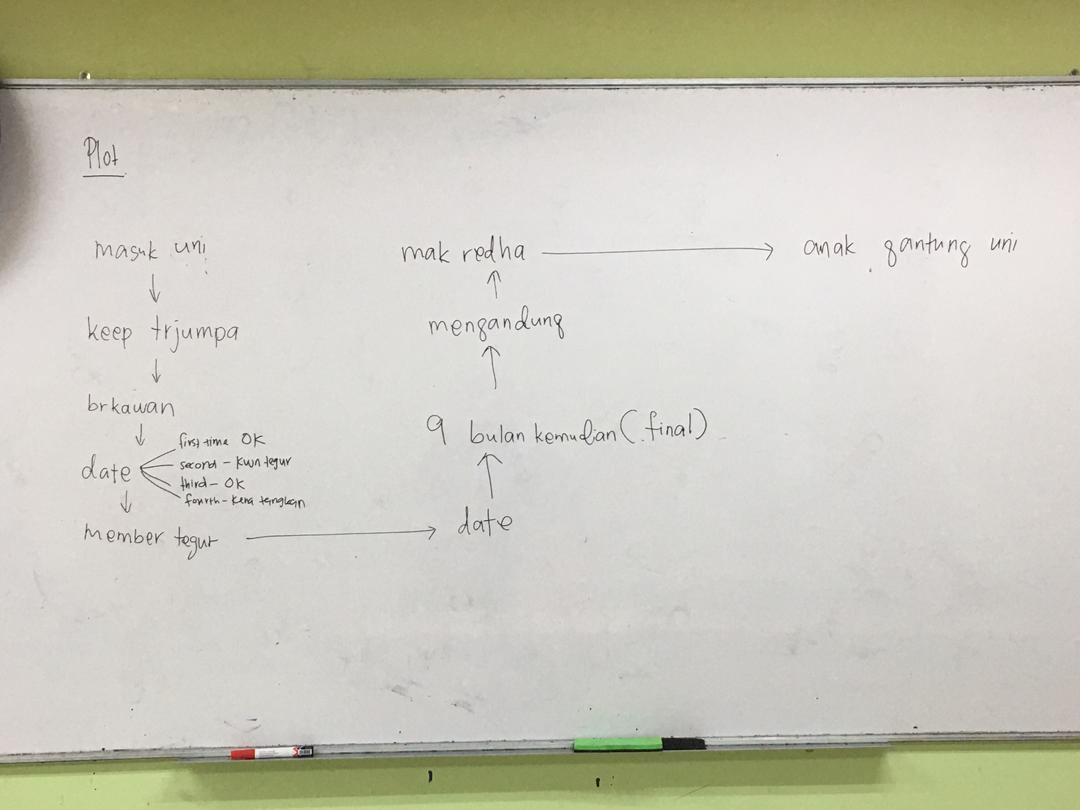 Plot
masuk uni
keep trjumpa
brkawan
date
first time OK
second - kwn tegur
third - OK
fourth - kena
member tegur
date
9 bulan kemudian (final)
mengandung
mak redha
anak gantung uni